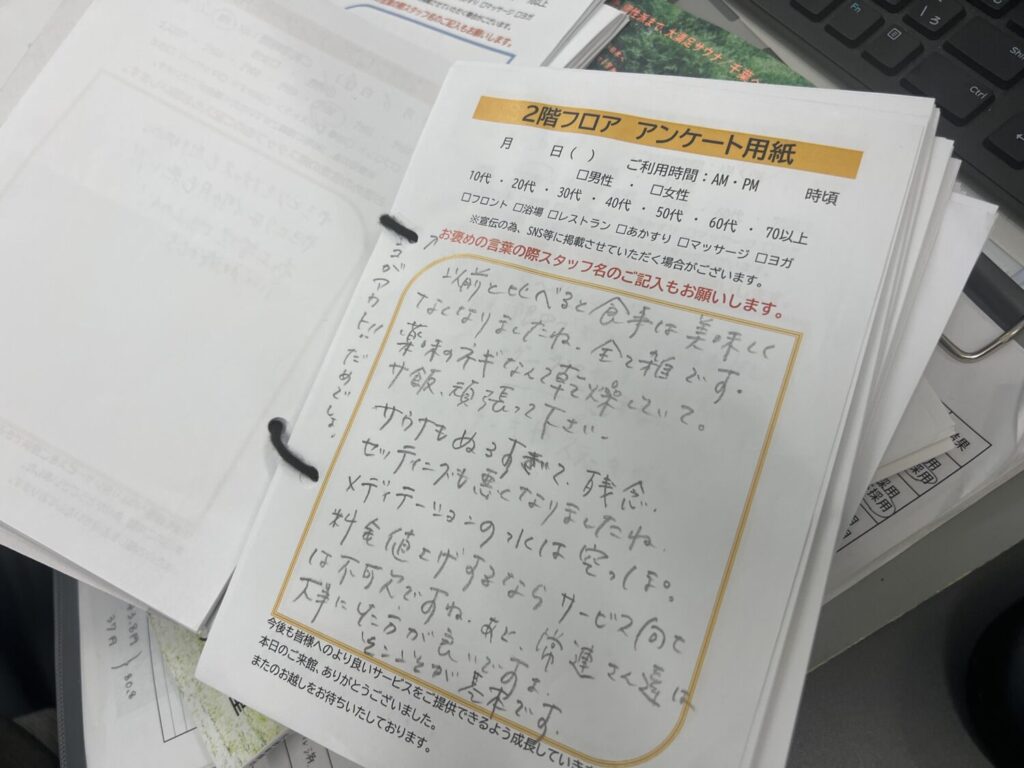 2階フロア アンケート用紙
月 日( ) ご利用時間：AM・PM 時頃
□男性 ・ □女性
10代・20代・30代・40代・50代・60代・70以上
□フロント □浴場 □レストラン □あかすり □マッサージ □ヨガ
※宣伝の為、SNS等に掲載させていただく場合がございます。
お褒めの言葉の際スタッフ名のご記入もお願いします。
以前と比べると食事は美味しく
なくなりましたね、全て雑です。
薬味のネギなんて乾燥していて。
サ飯、頑張って下さい。
サウナもぬるすぎて、残念、
セッティングも悪くなりましたね、
メディテーションの水は空っぽ。
料金値上げするならサービス向上
は不可欠ですね、あと、常連さん達は
大事にした方が良いですよ、
そこが基本です。
ココがアカリ!!だめでしょ。
今後も皆様へのより良いサービスをご提供できるよう成長していき
本日のご来館、ありがとうございました。
またのお越しをお待ちいたしております。
スタッフ名のご記入もお願いします。
Fn
Ctrl
ろ